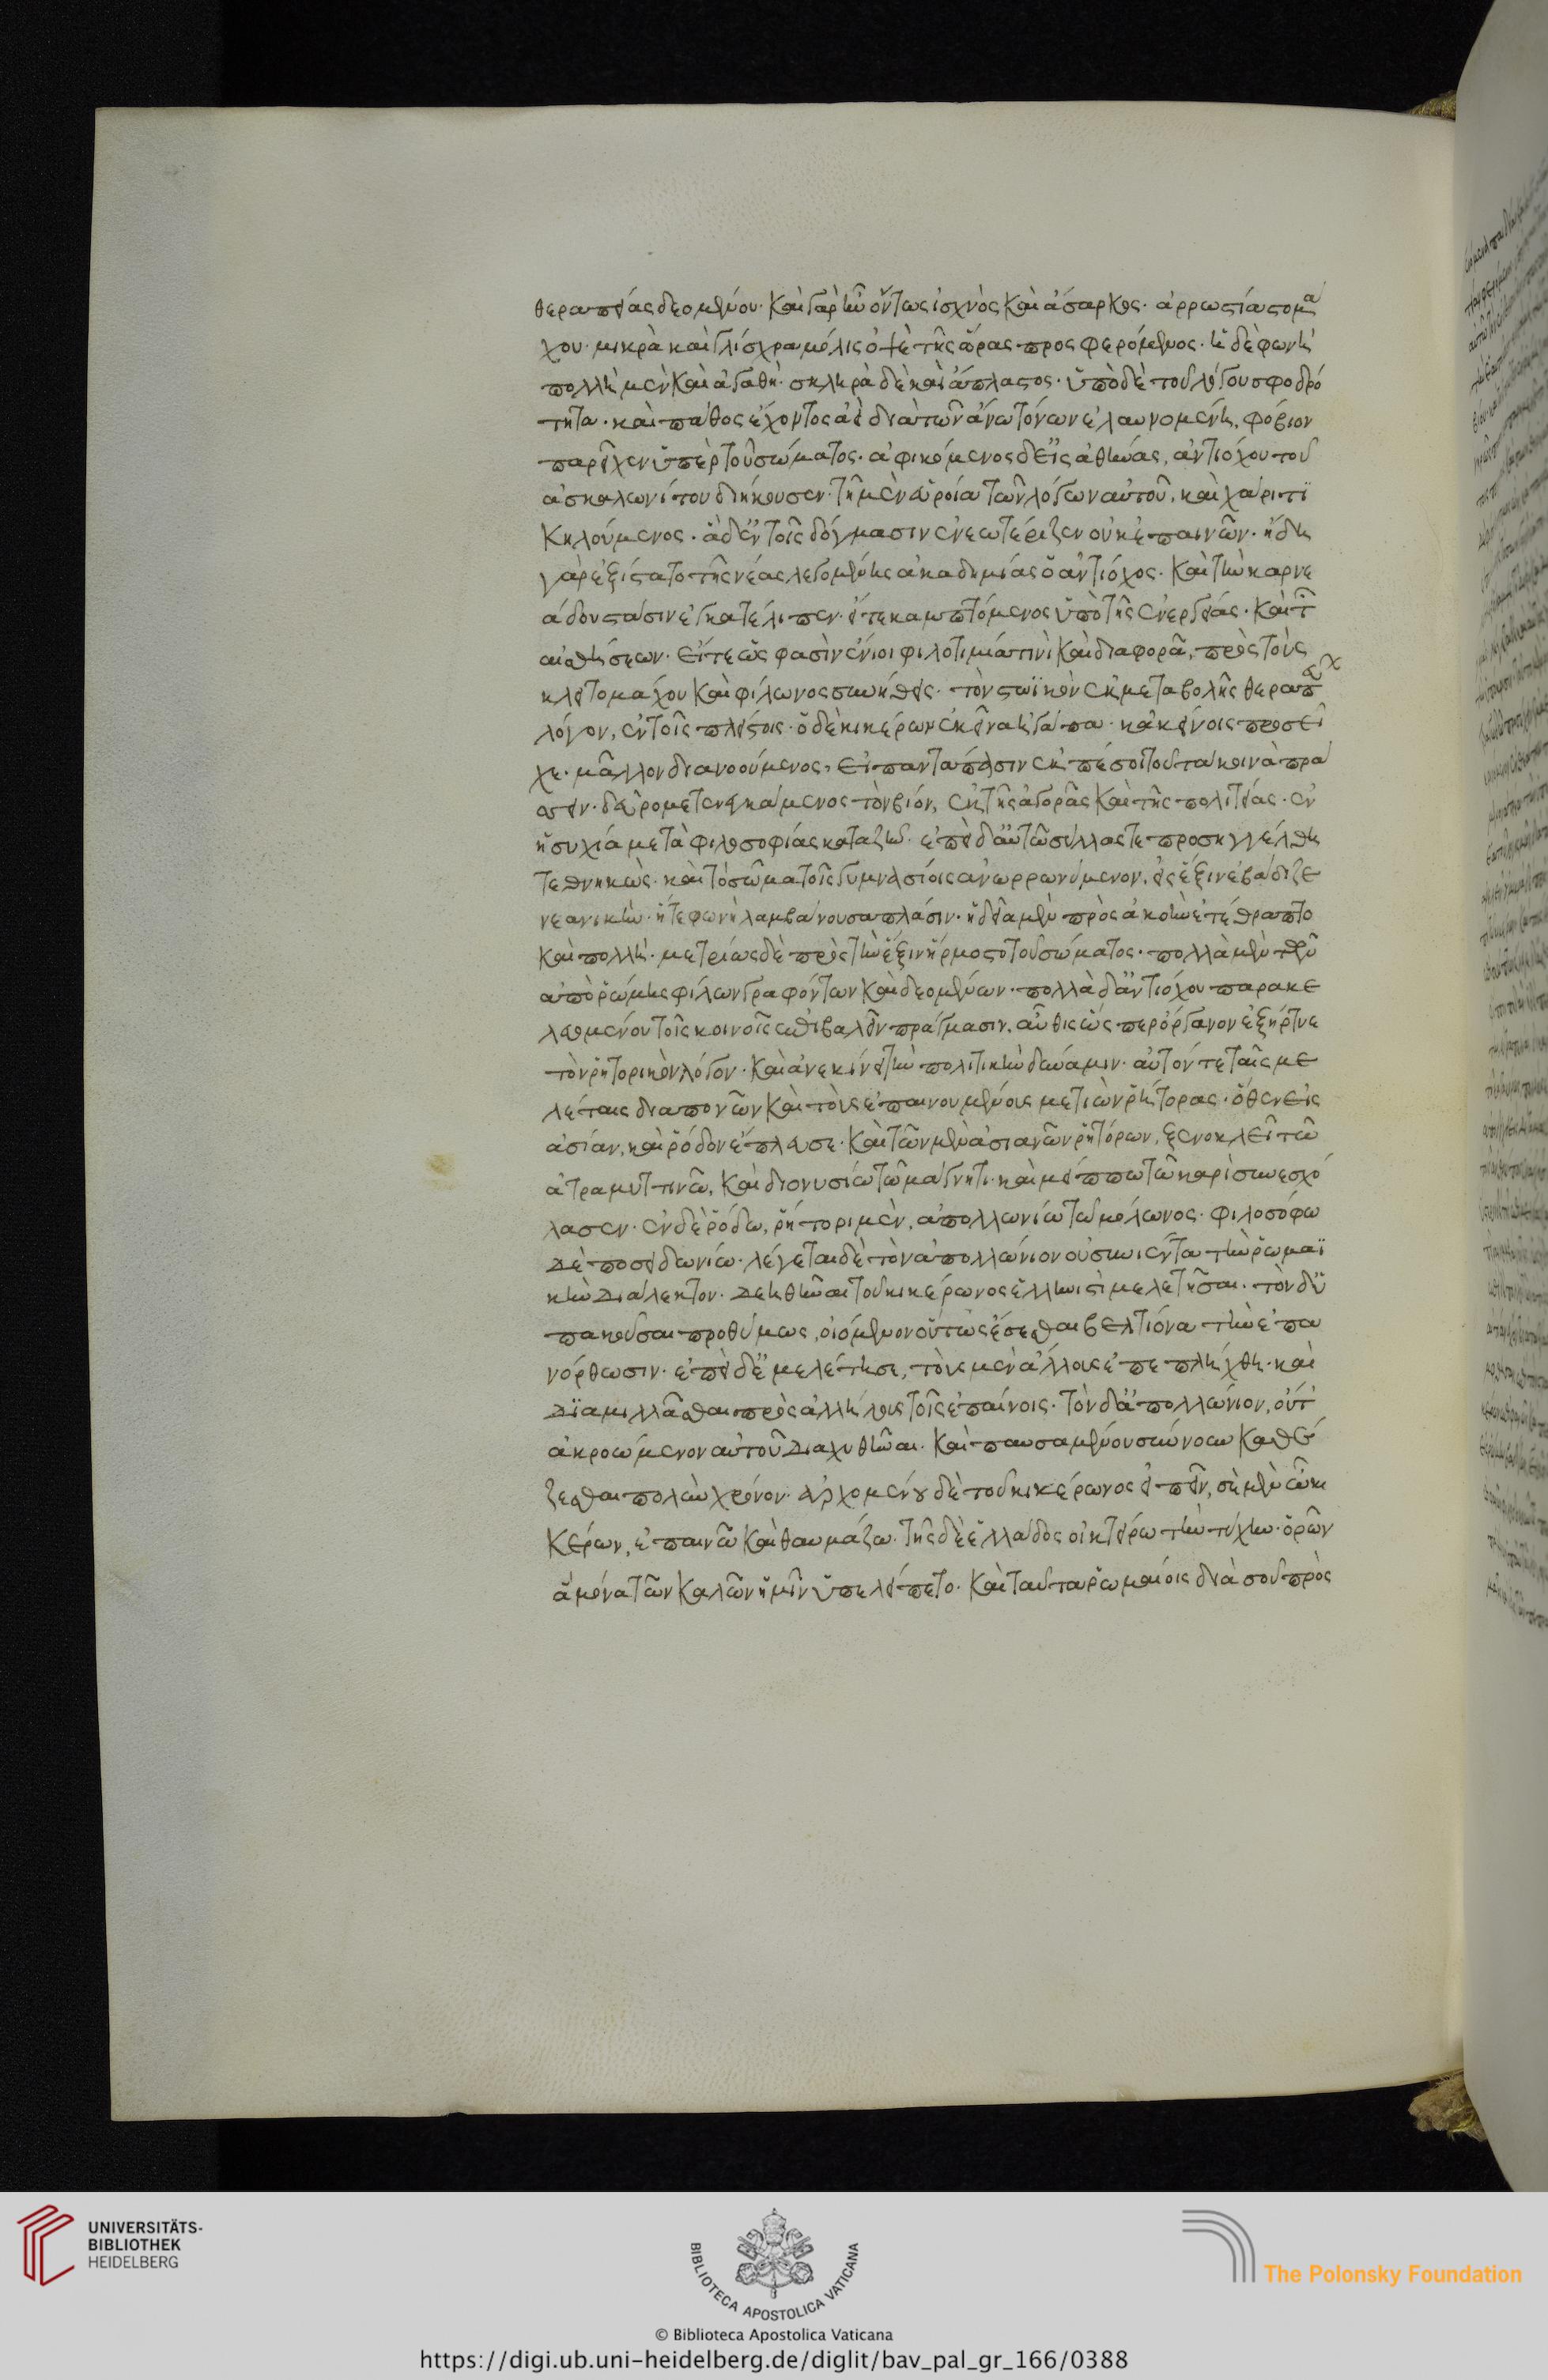 θεραπείας δεομένου· καὶ γὰρ ἦν ὄντως ἰσχνὸς καὶ ἄσαρκος· ἀρρωστία στομα
χου· μικρὰ καὶ γλίσχρα μόλις ὀψὲ τῆς ὥρας προσφερόμενος· ἡ δὲ φωνὴ
πολλὴ μὲν καὶ ἀγαθὴ· σκληρὰ δὲ καὶ ἄπλαστος· ὑπὸ δὲ τοῦ λόγου σφοδρό
τητα· καὶ πάθος ἔχοντος ἀεὶ διὰ τῶν ἄνω τόνων ἐλαυνομένη, φόβον
παρεῖχεν ὑπὲρ τοῦ σώματος· ἀφικόμενος δ' εἰς ἀθήνας, ἀντιόχου τοῦ
ἀσκαλωνίτου διήκουσεν· τῇ μὲν εὐροία τῶν λόγων αὐτοῦ, καὶ χάριτϊ
κηλούμενος· ἃ δ' ἐν τοῖς δόγμασιν ἐνεωτέριζεν οὐκ ἐπαινῶν· ἤδη
γὰρ ἐξίστατο τῆς νέας λεγομένης ἀκαδημίας ὁ ἀντίοχος· καὶ τὴν καρνε
άδου στάσιν ἐγκατέλιπεν· εἴτε καμπτόμενος ὑπὸ τῆς ἐνεργείας· καὶ τῶν
αἰσθήσεων· εἴτε ὥς φασὶν ἔνιοι φιλοτιμία τινὶ καὶ διαφορᾶ, πρὸς τοὺς
κλειτομάχου καὶ φίλωνος συνήθεις· τὸν στωϊκὸν ἐκ μεταβολῆς θεραπεύων
λόγον, ἐν τοῖς πλείστοις· ὁ δὲ κικέρων ἐκεῖνα ἠγάπα· κἀκείνοις προσεῖ
χε· μᾶλλον διανοούμενος, εἰ παντάπασιν ἐκπέσοι τοῦ τὰ κοινὰ πρά
σσειν· δεῦρο μετενεγκάμενος τὸν βίον, ἐκ τῆς ἀγορᾶς καὶ τῆς πολιτείας· ἐν
ἡσυχία μετὰ φιλοσοφίας καταζῆν· ἐπεὶ δ' αὐτῶ σύλλας τε προσηγγέλθη
τεθνηκὼς· καὶ τὸ σῶμα τοῖς γυμνασίοις ἀναρρωννύμενον, εἰς ἕξιν ἐβάδιζε
νεανικὴν· ἥ τε φωνὴ λαμβάνουσα πλάσιν· ἡδεῖα μὲν πρὸς ἀκοὴν ἐτέθραπτο
καὶ πολλὴ· μετρίως δὲ πρὸς τὴν ἕξιν ἥρμοστο τοῦ σώματος· πολλὰ μὲν τῶν
ἀπὸ ῥώμης φίλων γραφόντων καὶ δεομένων· πολλὰ δ' ἀντιόχου παρακε
λευομένου τοῖς κοινοῖς ἐπιβαλεῖν πράγμασιν, αὖθις ὥσπερ ὄργανον ἐξήρτυε
τὸν ῥητορικὸν λόγον· καὶ ἀνεκίνει τὴν πολιτικὴν δύναμιν· αὑτόν τε ταῖς με
λέταις διαπονῶν καὶ τοὺς ἐπαινουμένους μετιὼν ῥήτορας· ὅθεν εἰς
ἀσίαν, καὶ ῥόδον ἔπλευσε· καὶ τῶν μὲν ἀσιανῶν ῥητόρων, ξενοκλεῖ τῶ
ἀτραμυττινῶ, καὶ διονυσίω τῶ μάγνητι· καὶ μενίππω τῶ καρὶ συνεσχό
λασεν· ἐν δὲ ῥόδω, ῥήτορι μὲν, ἀπολλωνίω τῶ μόλωνος· φιλοσόφω
δὲ ποσειδωνίω· λέγεται δὲ τὸν ἀπολλώνιον οὐ συνιέντα τὴν ῥωμαϊ
κὴν διάλεκτον· δεηθῆναι τοῦ κικέρωνος ἑλληνιστὶ μελετῆσαι· τὸν δ' ὑ
πακοῦσαι προθύμως, οἰόμενον οὕτως ἔσεσθαι βελτίονα τὴν ἐπα
νόρθωσιν· ἐπεὶ δ' ἐμελέτησε, τοὺς μὲν ἄλλους ἐκπεπλῆχθαι· καὶ
διαμιλλᾶσθαι πρὸς ἀλλήλους τοῖς ἐπαίνοις· τὸν δ' ἀπολλώνιον, οὔτ'
ἀκροώμενον αὐτοῦ διαχυθῆναι· καὶ παυσαμένου σύννουν καθέ
ζεσθαι πολὺν χρόνον· ἀχθομένου δὲ τοῦ κικέρωνος εἰπεῖν, σὲ μὲν ὦ κι
κέρων, ἐπαινῶ καὶ θαυμάζω· τῆς δὲ ἑλλάδος οἰκτείρω τὴν τύχην· ὁρῶν
ἃ μόνα τῶν καλῶν ἡμῖν ὑπελείπετο· καὶ ταῦτα ῥωμαίοις διὰ σοῦ προσ
UNIVERSITÄTS-
BIBLIOTHEK
HEIDELBERG
BIBLIOTECA APOSTOLICA VATICANA
The Polonsky Foundation
© Biblioteca Apostolica Vaticana
https://digi.ub.uni-heidelberg.de/diglit/bav_pal_gr_166/0388